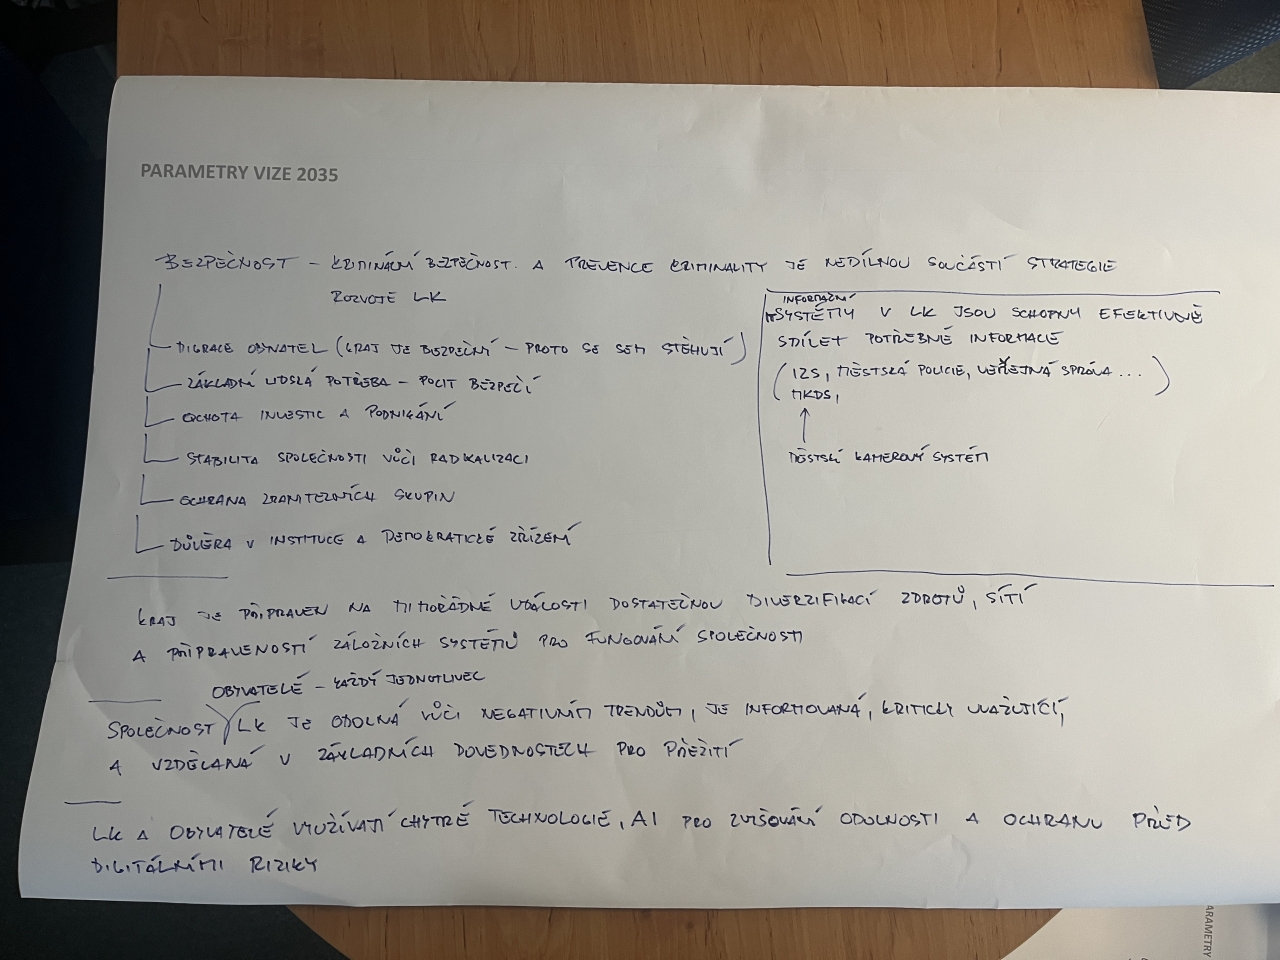 PARAMETRY VIZE 2035
BEZPEČNOST – KRIMINÁLNÍ BEZPEČNOST. A PREVENCE KRIMINALITY JE NEDÍLNOU SOUČÁSTÍ STRATEGIE
ROZVOJE LK
MIGRACE OBYVATEL (KRAJ JE BEZPEČNÝ – PROTO SE SEM STĚHUJÍ)
ZÁKLADNÍ LIDSKÁ POTŘEBA – POCIT BEZPEČÍ
OCHOTA INVESTIC A PODNIKÁNÍ
STABILITA SPOLEČNOSTI VŮČI RADIKALIZACI
OCHRANA ZRANITELNÝCH SKUPIN
DŮVĚRA V INSTITUCE A DEMOKRATICKÉ ZŘÍZENÍ
INFORMAČNÍ
SYSTÉMY V LK JSOU SCHOPNY EFEKTIVNĚ
SDÍLET POTŘEBNÉ INFORMACE
(IZS, MĚSTSKÁ POLICIE, VEŘEJNÁ SPRÁVA ...)
MKDS,
MĚSTSKÝ KAMEROVÝ SYSTÉM
KRAJ JE PŘIPRAVEN NA MIMOŘÁDNÉ UDÁLOSTI DOSTATEČNOU DIVERZIFIKACÍ ZDROJŮ, SÍTÍ
A PŘIPRAVENOSTÍ ZÁLOŽNÍCH SYSTÉMŮ PRO FUNGOVÁNÍ SPOLEČNOSTI
OBYVATELÉ – KAŽDÝ JEDNOTLIVEC
SPOLEČNOST LK JE ODOLNÁ VŮČI NEGATIVNÍM TRENDŮM, JE INFORMOVANÁ, KRITICKY UVAŽUJÍCÍ,
A VZDĚLANÁ V ZÁKLADNÍCH DOVEDNOSTECH PRO PŘEŽITÍ
LK A OBYVATELÉ VYUŽÍVAJÍ CHYTRÉ TECHNOLOGIE, AI PRO ZVYŠOVÁNÍ ODOLNOSTI A OCHRANU PŘED
DIGITÁLNÍMI RIZIKY
PARAMETRY